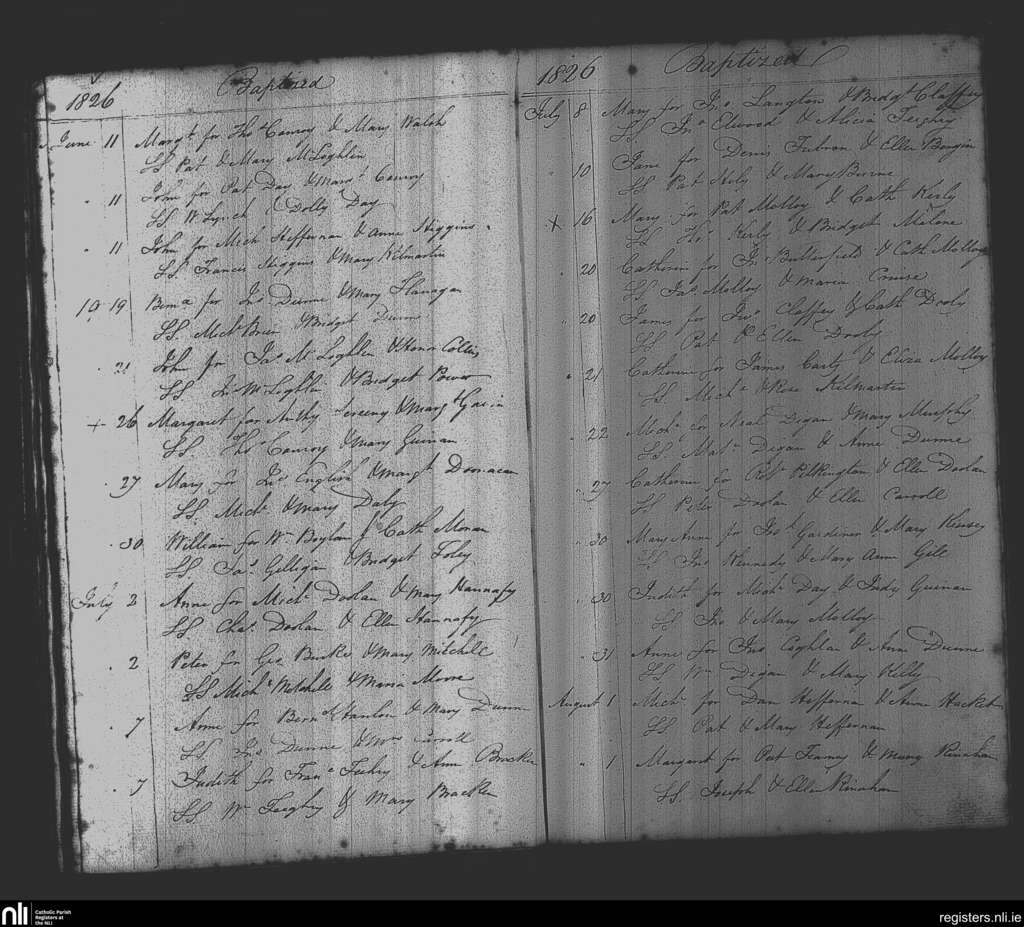 1826 Baptized
June 11 Margt for Thos Conroy & Mary Walsh
SS Pat & Mary McLoghlin
" 11 John for Pat Day & Margt Conroy
SS W Lynch & Dolly Day
" 11 John for Mich Heffernan & Anne Higgins
SS Francis Higgins & Mary Kilmartin
19 for Jno Dunne & Mary Flanagan
SS Mich Breen & Bridget Dunne
" 21 John for Jas McLoghlin & Honor Collins
SS Jno McLoghlin & Bridget Bower
+ 26 Margaret for Anthy & Margt
SS Thos Conroy & Mary Guinan
" 27 Mary for Jno English & Margt
SS Michl & Mary Daly
" 30 William for Wm Boylan & Cath Moran
SS Jas Gilligan & Bridget Foley
July 2 Anne for Michl Doolan & Mary Hannafy
SS Chas Doolan & Ellen Hannafy
" 2 Peter for Geo Burke & Mary Mitchell
SS Michl Mitchell & Maria Moore
" 7 Anne for Bernd Hanlon & Mary Dunne
SS Jno Dunne & Carroll
" 7 Judith for Frans & Ann Bracken
SS Wm Feighry & Mary Bracken
1826 Baptized
July 8 Mary for Jno Langton & Bridgt Claffey
SS Jno Elwood & Alicia Feighry
" 10 Jane for Denis & Ellen
SS Pat Hely & Mary Burne
+ 16 Mary for Pat Molloy & Cath Kerly
SS Thos Kerly & Bridget Malone
" 20 Catherine for Jno Butterfield & Cath Molloy
SS Jas Molloy & Maria Cruise
" 20 James for Jno Claffey & Cath Dooly
SS Pat & Ellen Dooly
" 21 Catherine for James Carty & Eliza Molloy
SS Michl & Rose Kilmartin
" 22 Michl for Neal Digan & Mary Murphy
SS Matw Digan & Anne Dunne
" 27 Catherine for Robt Pilkington & Ellen Doolan
SS Peter Doolan & Ellen Carroll
" 30 Mary Anne for Josh Gardiner & Mary
SS Jno Kennedy & Mary Anne Gill
" 30 Judith for Michl Day & Judy Guinan
SS Jno & Mary Molloy
" 31 Anne for Jno Coghlan & Ann Dunne
SS Wm Digan & Mary Kelly
August 1 Michl for Dan Heffernan & Anne Hacket
SS Pat & Mary Heffernan
" 1 Margaret for Pat & Mary Kinahan
SS Joseph & Ellen Kinahan
nli
Catholic Parish
Registers at
the NLI
registers.nli.ie